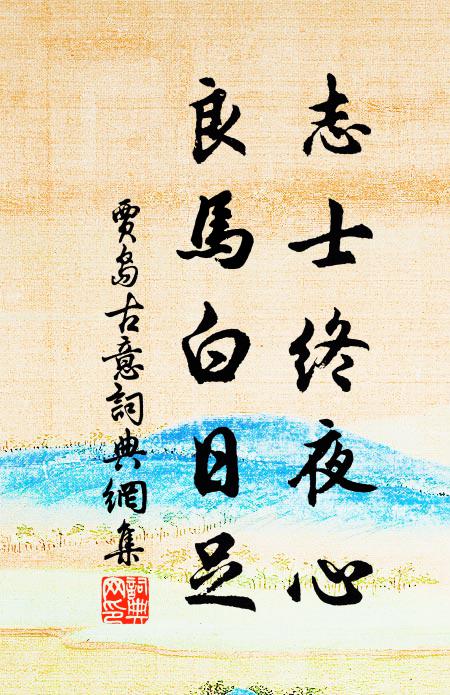 志士終夜心
良馬白日足
賈島古意詞典網集
詞典